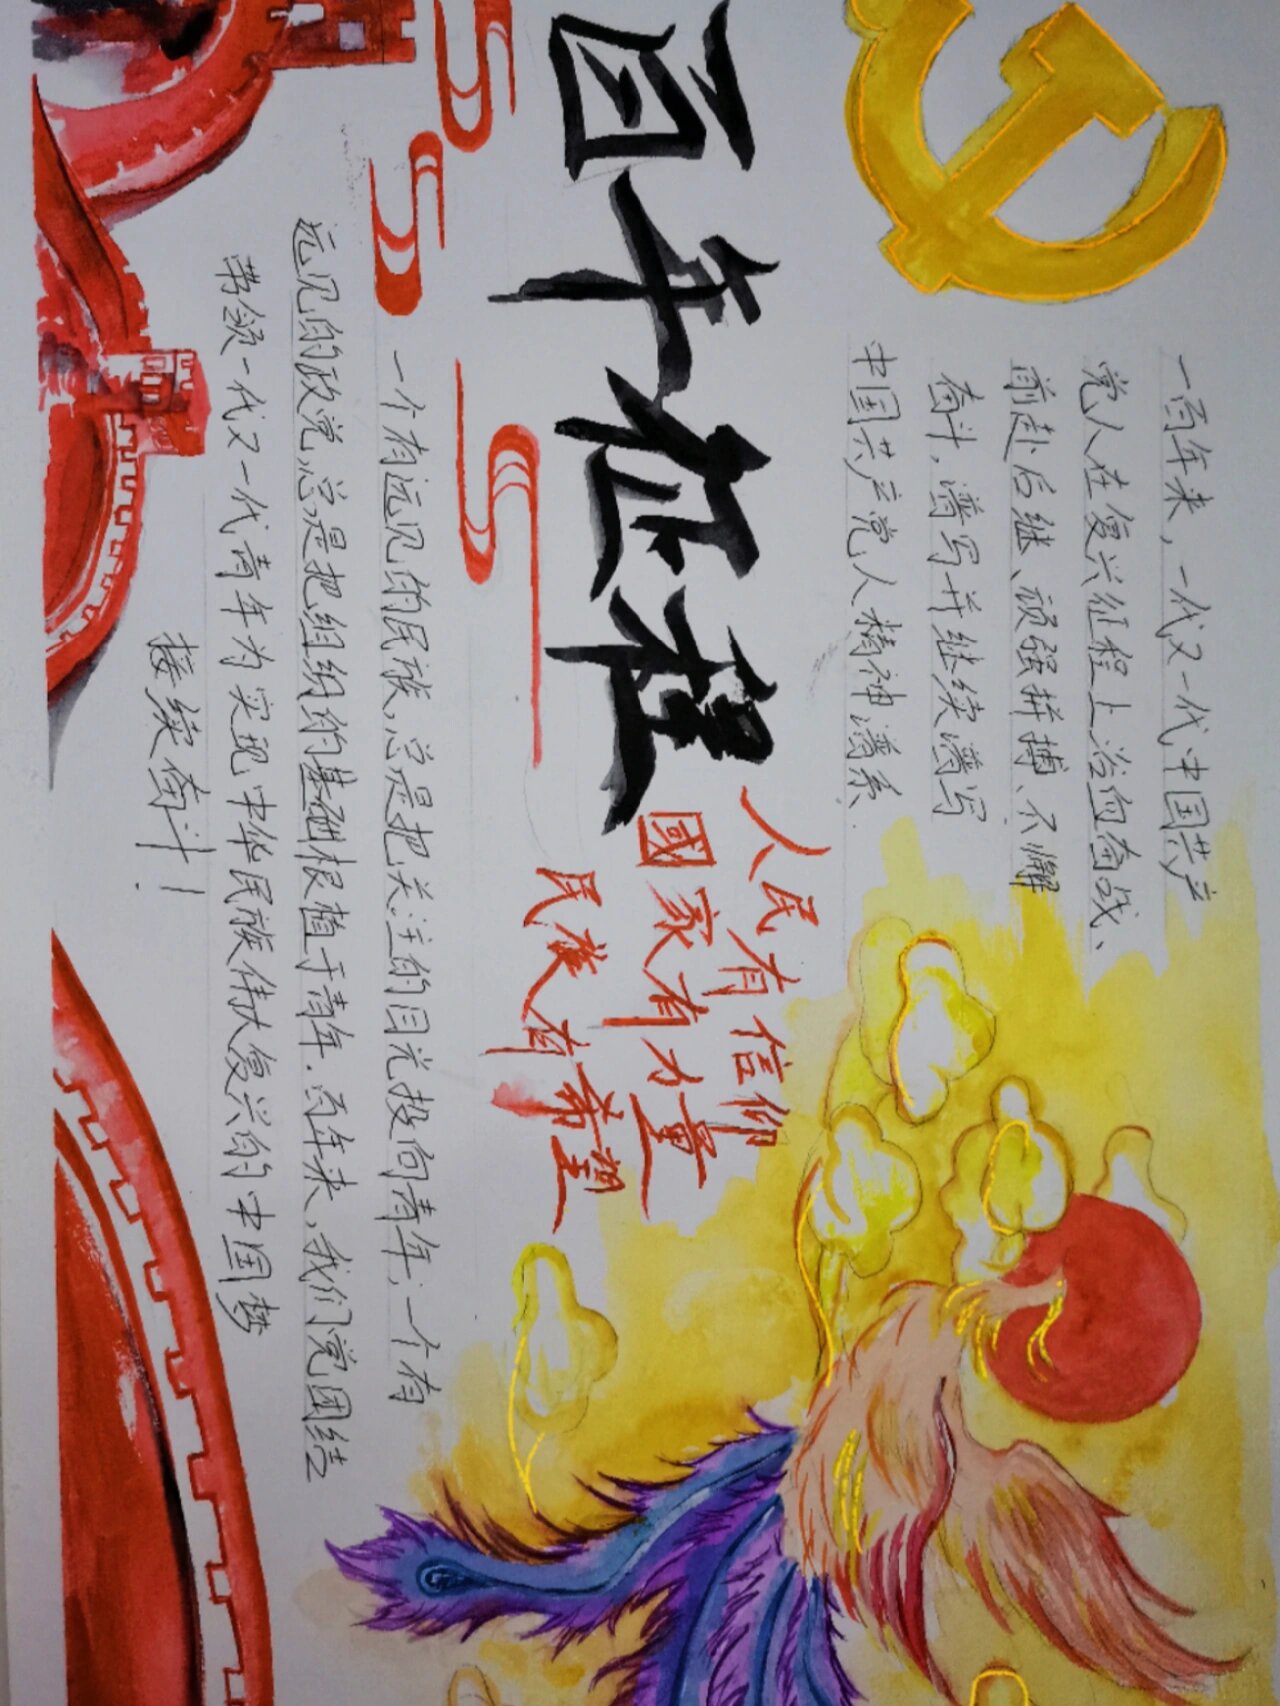 一百年来，一代又一代中国共产
党人在复兴征程上浴血奋战、
前赴后继、顽强拼搏、不懈
奋斗，谱写并继续谱写
中国共产党人精神谱系
百年征程
人民有信仰
國家有力量
民族有希望
一个有远见的民族，总是把关注的目光投向青年；一个有
远见的政党，总是把组织的基础根植于青年．百年来，我们党团结
带领一代又一代青年为实现中华民族伟大复兴的中国梦
接续奋斗！